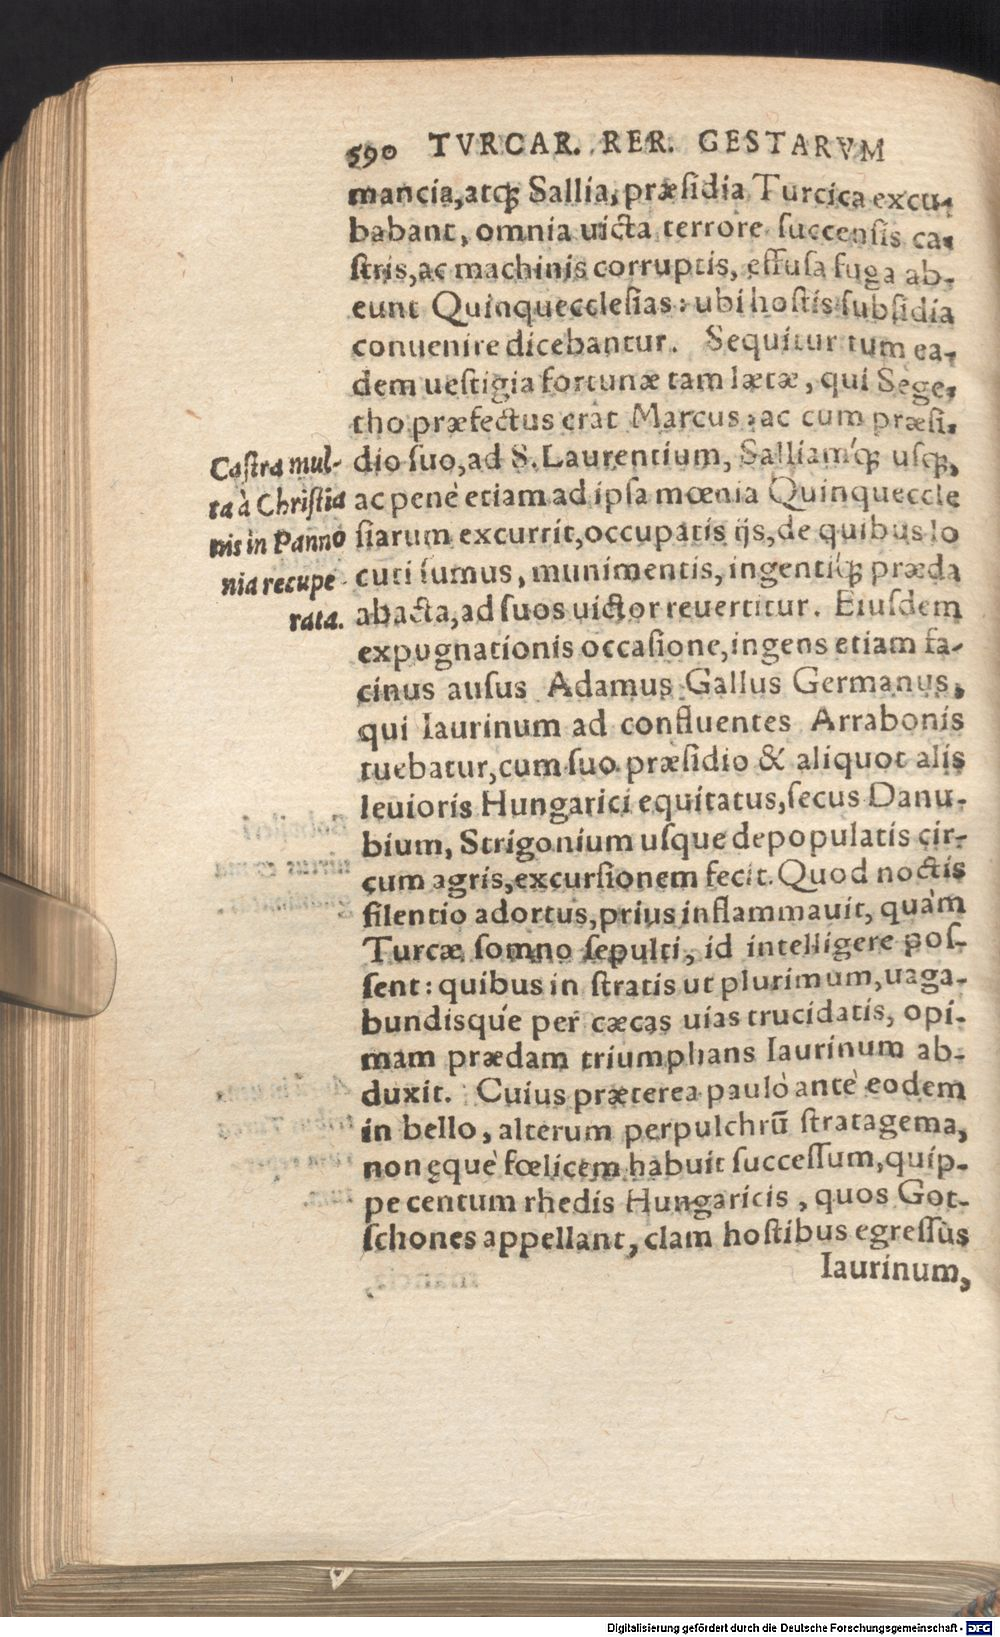 590 TVRCAR. RER. GESTARVM
mancia, atq; Sallia, præsidia Turcica excu-
babant, omnia uicta terrore succensis ca-
stris, ac machinis corruptis, effusa fuga ab-
eunt Quinquecclesias: ubi hostis subsidia
conuenire dicebantur. Sequitur tum ea-
dem uestigia fortunæ tam lætæ, qui Sege-
tho præfectus erat Marcus: ac cum præsi-
dio suo, ad S. Laurentium, Salliamq́; usq;,
ac penè etiam ad ipsa mœnia Quinqueccle
siarum excurrit, occupatis ijs, de quibus lo
cuti sumus, munimentis, ingentiq́; præda
abacta, ad suos uictor reuertitur. Eiusdem
expugnationis occasione, ingens etiam fa-
cinus ausus Adamus Gallus Germanus,
qui Iaurinum ad confluentes Arrabonis
tuebatur, cum suo præsidio & aliquot alis
leuioris Hungarici equitatus, secus Danu-
bium, Strigonium usque depopulatis cir-
cum agris, excursionem fecit. Quod noctis
silentio adortus, prius inflammauit, quàm
Turcæ somno sepulti, id intelligere pos-
sent: quibus in stratis ut plurimum, uaga-
bundisqúe per cæcas uias trucidatis, opi-
mam prædam triumphans Iaurinum ab-
duxit. Cuius præterea paulò antè eodem
in bello, alterum perpulchrũ stratagema,
non ęquè fœlicem habuit successum, quip-
pe centum rhedis Hungaricis, quos Got-
schones appellant, clam hostibus egressùs
Iaurinum,
Castra mul-
ta à Christia
nis in Panno
nia recupe-
rata.
Digitalisierung gefördert durch die Deutsche Forschungsgemeinschaft - DFG